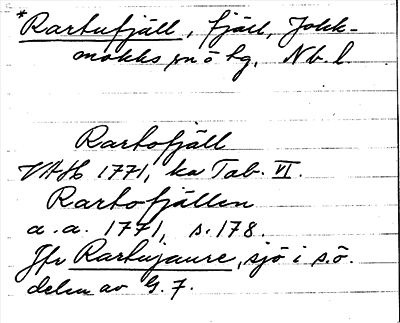 *Rartufjäll, fjäll, Jokk-
mokks sn o hg, Nb. l.
Rartofjäll
VAH 1771, ka Tab. VI.
Rartofjällen
a.a. 1771, s. 178.
Jfr Rartujaure, sjö i s.ö.
delen av G. 7.